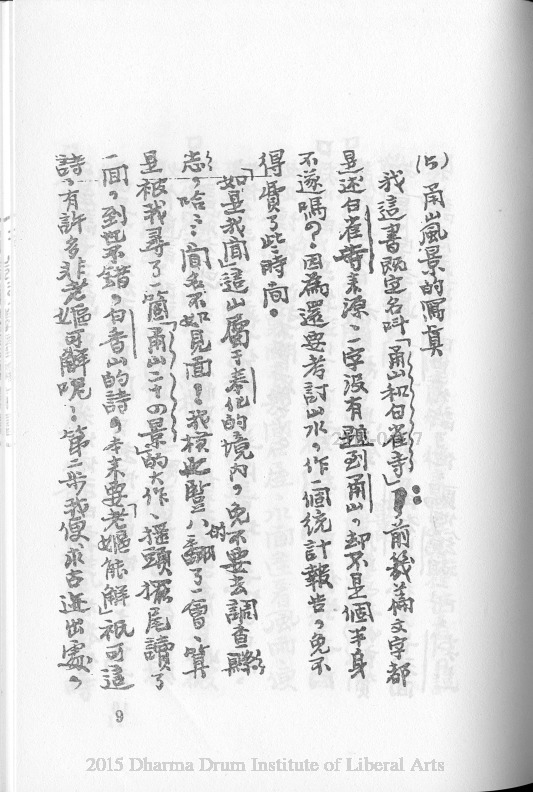 (15)甬山風景的寫真
我這書既定名叫「甬山和白雀寺」前幾篇文字都
是述白雀寺來源、一字沒有題到甬山、却不是個半身
不遂嗎?因為還要考討山水、作一個統計報告、免不
得費了些時間。
「如是我聞」這山屬于奉化的境內、免不要去調查縣
志、哈…聞名不如見面!我橫豎八的翻了一會、算
是被我尋了一箇「甬山二十四景」的大作、搖頭擺尾讀了
一回、到架不錯、白香山的詩、本來要「老嫗能解」祇可這
詩、有許多非老嫗可解呢…第二步我便求古迹出處、
9
2015 Dharma Drum Institute of Liberal Arts